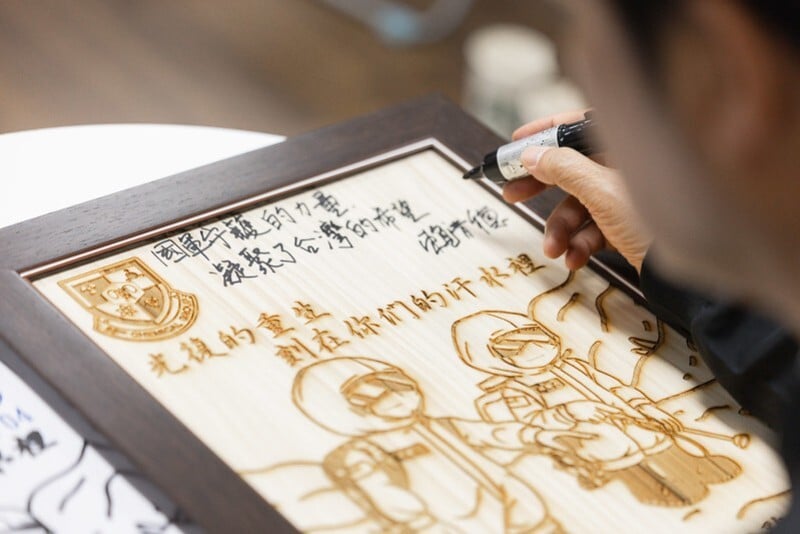 國軍守護的力量
凝聚了台灣的希望
光復的重生
刻在你們的汗水裡
04
裡